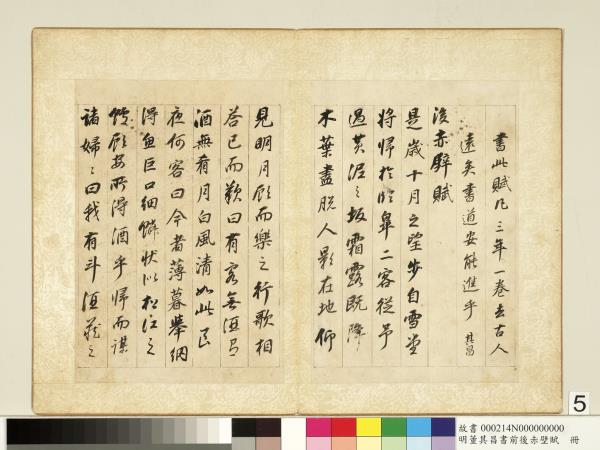 書此賦凡三年一卷去古人
遠矣書道安能進乎 其昌
後赤壁賦
是歲十月之望步自雪堂
將歸於臨皋二客從予
過黃泥之坂霜露既降
木葉盡脫人影在地仰
見明月顧而樂之行歌相
答已而歎曰有客無酒有
酒無肴月白風清如此良
夜何客曰今者薄暮舉網
得魚巨口細鱗狀似松江之
鱸顧安所得酒乎歸而謀
諸婦〻曰我有斗酒藏之
5
故書 000214N000000000
明董其昌書前後赤壁賦 冊